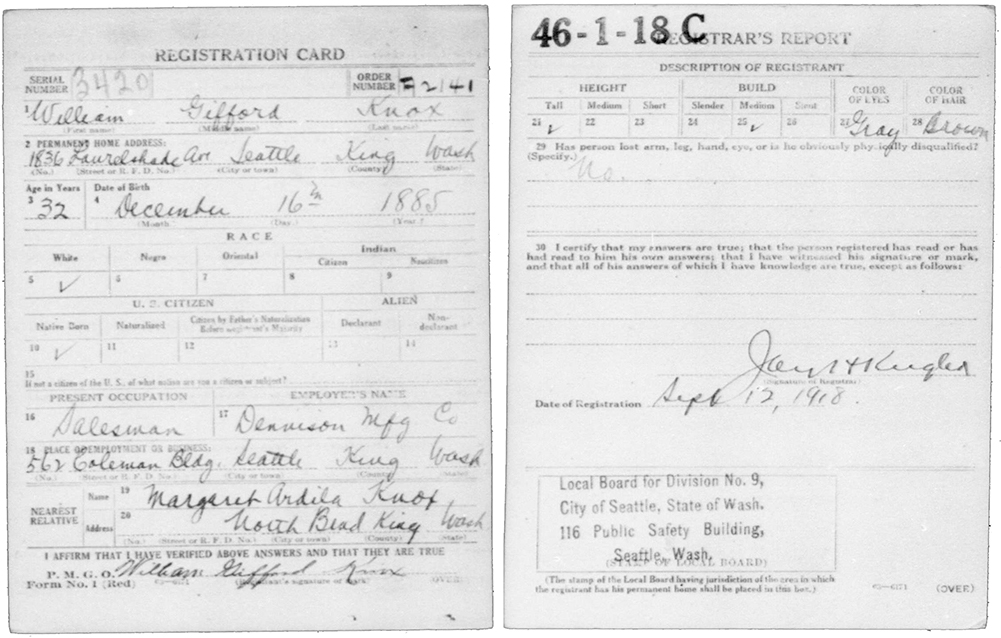 REGISTRATION CARD
SERIAL NUMBER 3420 ORDER NUMBER 2141
1 William Gifford Knox
(First name) (Middle name) (Last name)
2 PERMANENT HOME ADDRESS:
1836 Laurelshade Av. Seattle King Wash
(No.) (Street or R. F. D. No.) (City or town) (County) (State)
Age in Years Date of Birth
3 32 4 December 16th 1885
(Month.) (Day.) (Year.)
RACE
White Negro Oriental Indian
Citizen Noncitizen
5 ✓ 6 7 8 9
U. S. CITIZEN ALIEN
Native Born Naturalized Citizen by Father's Naturalization Before Registrant's Majority Declarant Non-declarant
10 ✓ 11 12 13 14
15
If not a citizen of the U. S., of what nation are you a citizen or subject?
PRESENT OCCUPATION EMPLOYER'S NAME
16 Salesman 17 Dennison Mfg Co
18 PLACE OF EMPLOYMENT OR BUSINESS:
562 Coleman Bldg. Seattle King Wash
(No.) (Street or R. F. D. No.) (City or town) (County) (State)
NEAREST RELATIVE Name 19 Margaret Ardila Knox
Address 20 North Bend King Wash
(No.) (Street or R. F. D. No.) (City or town) (County) (State)
I AFFIRM THAT I HAVE VERIFIED ABOVE ANSWERS AND THAT THEY ARE TRUE
P. M. G. O.
Form No. 1 (Red) William Gifford Knox
(Registrant's signature or mark) (OVER)
46-1-18 C
REGISTRAR'S REPORT
DESCRIPTION OF REGISTRANT
HEIGHT BUILD COLOR OF EYES COLOR OF HAIR
Tall Medium Short Slender Medium Stout
21 ✓ 22 23 24 25 ✓ 26 27 Gray 28 Brown
29 Has person lost arm, leg, hand, eye, or is he obviously physically disqualified?
(Specify.) No.
30 I certify that my answers are true; that the person registered has read or has
had read to him his own answers; that I have witnessed his signature or mark,
and that all of his answers of which I have knowledge are true, except as follows:
(Signature of Registrar)
Date of Registration Sept 12, 1918.
Local Board for Division No. 9,
City of Seattle, State of Wash.
116 Public Safety Building,
Seattle, Wash.
(STAMP OF LOCAL BOARD)
(The stamp of the Local Board having jurisdiction of the area in which
the registrant has his permanent home shall be placed in this box.)
(OVER)